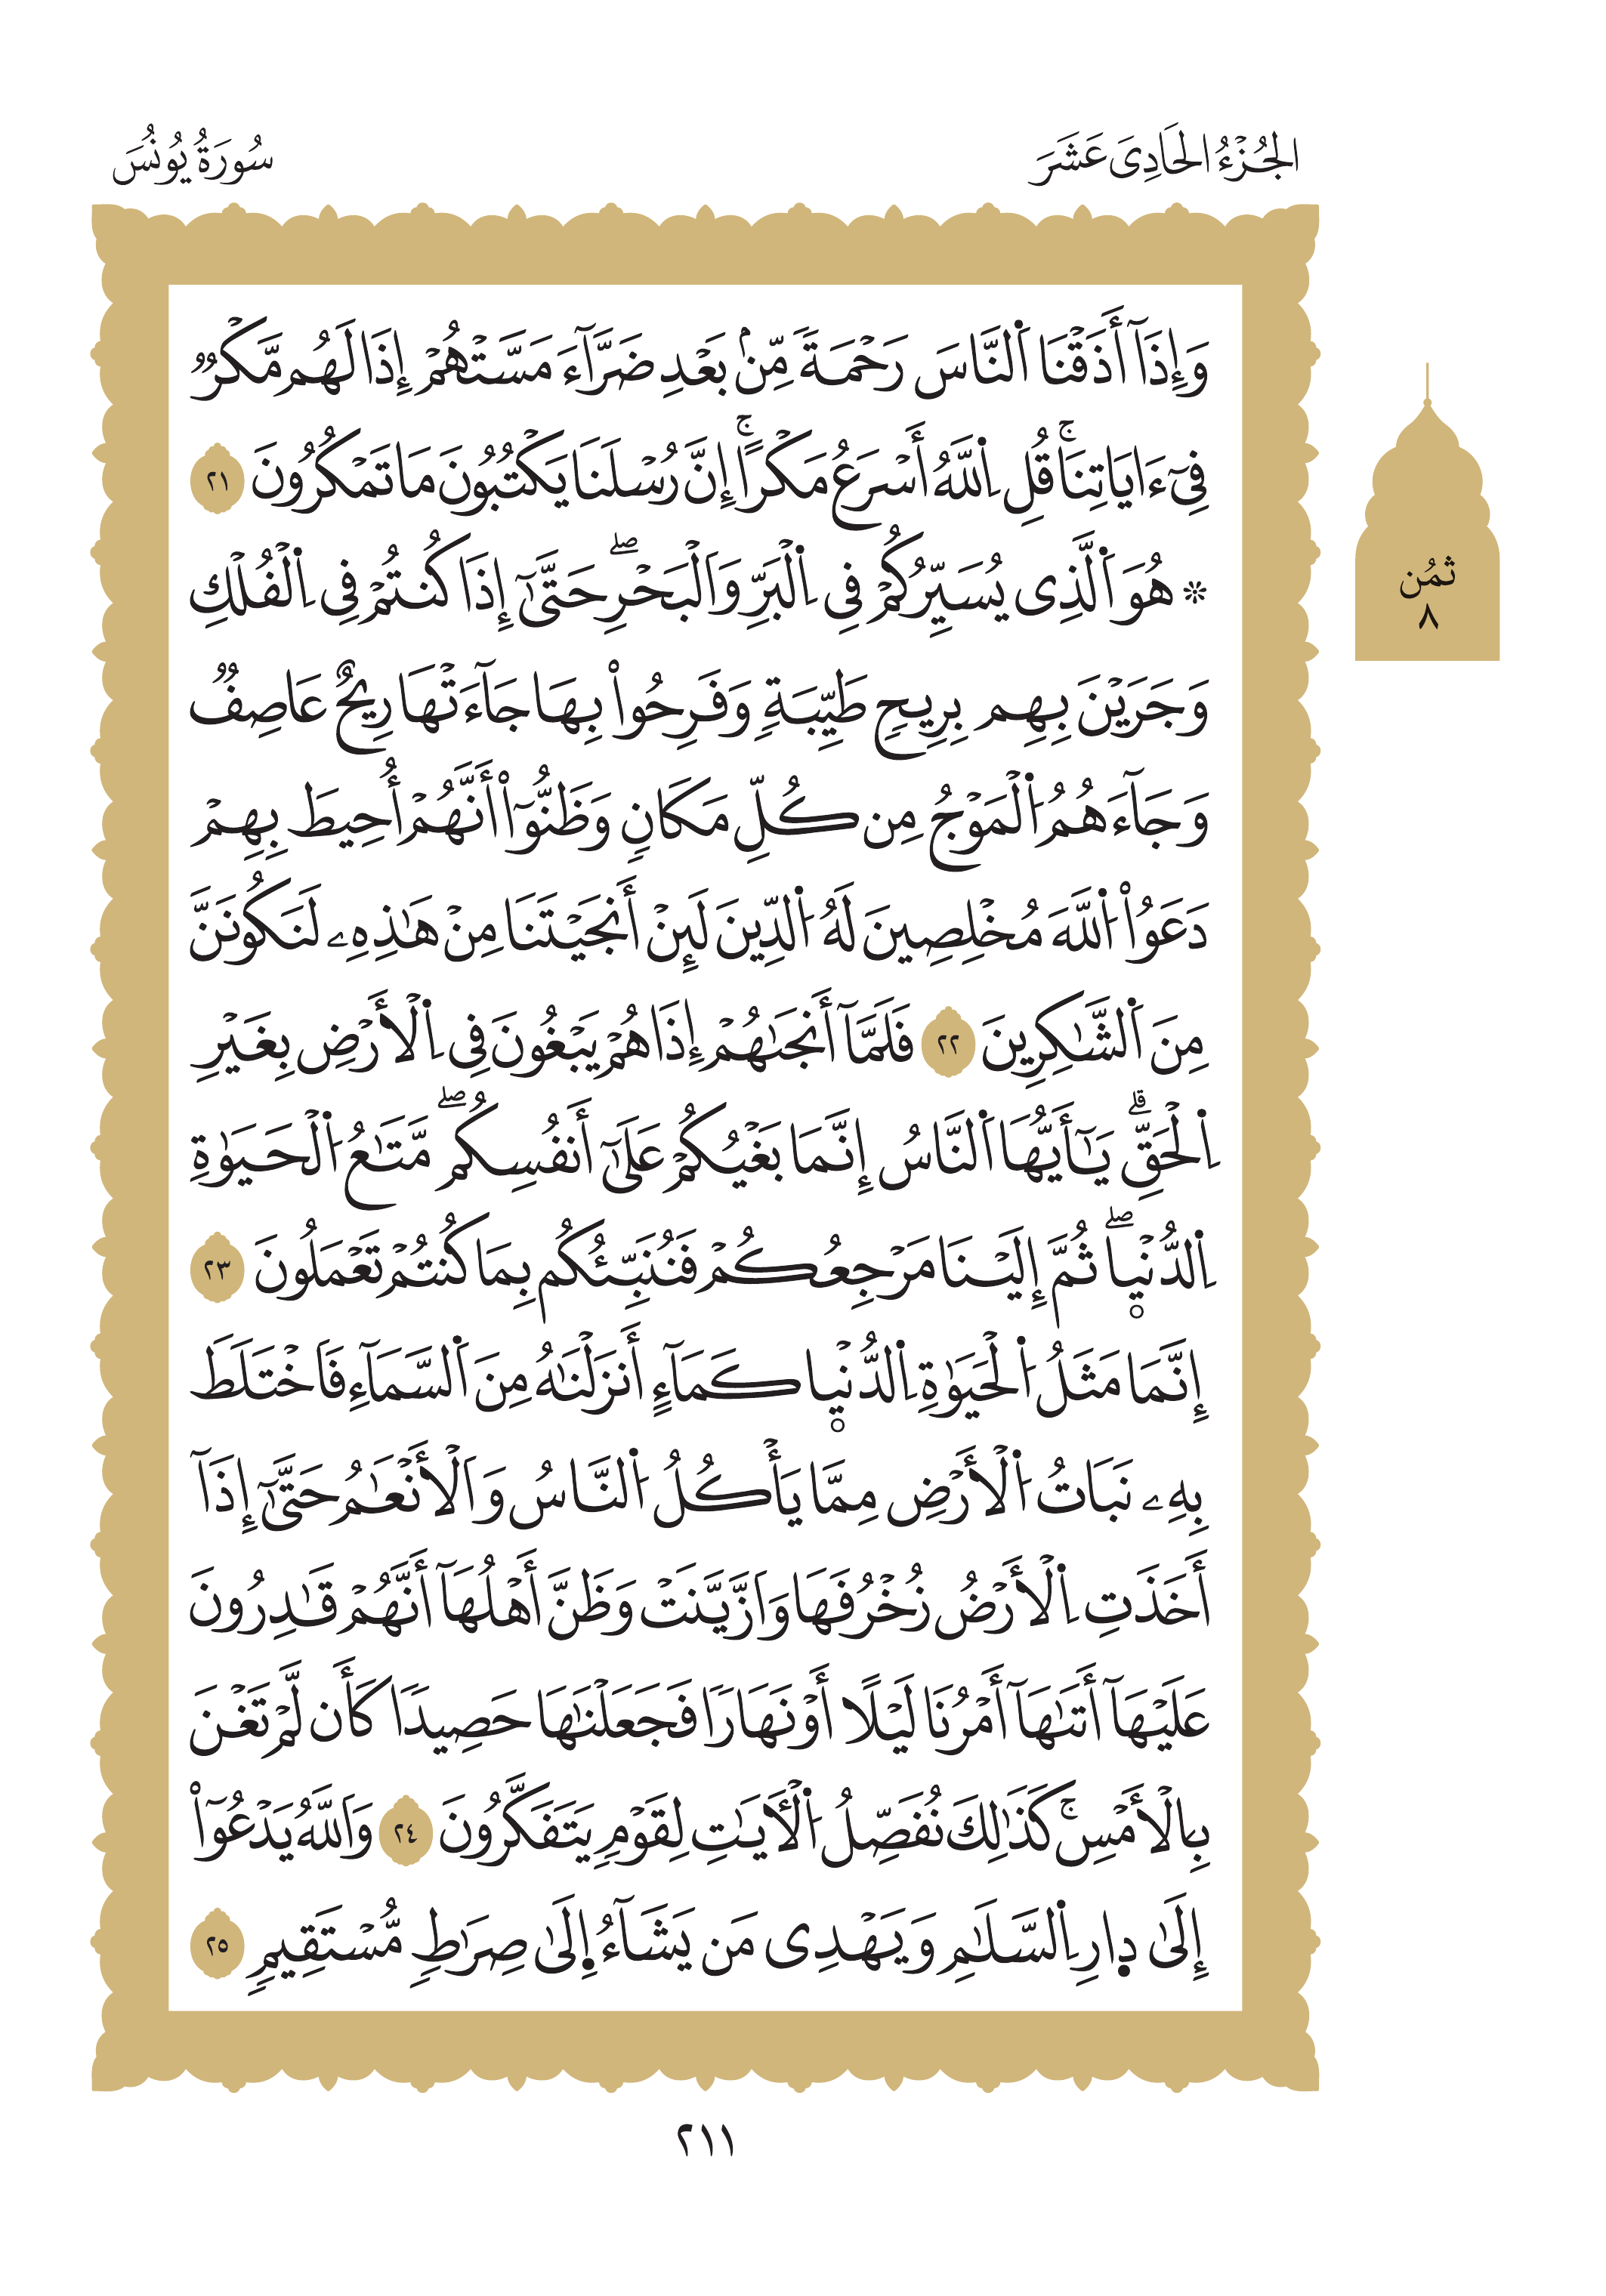 الجُزْءُ الحَادِىَ عَشَرَ
سُورَةُ يُونُسَ
وَإِذَآ أَذَقْنَا اَ۬لنَّاسَ رَحْمَةٗ مِّنۢ بَعْدِ ضَرَّآءَ مَسَّتْهُمْ إِذَا لَهُم مَّكْرٞ
فِىٓ ءَايَاتِنَاۚ قُلِ اِ۬للَّهُ أَسْرَعُ مَكْرًاۚ إِنَّ رُسْلَنَا يَكْتُبُونَ مَا تَمْكُرُونَ ٢١
۞ هُوَ اَ۬لَّذِى يُسَيِّرُكُمْ فِى اِ۬لْبَرِّ وَالْبَحْرِۖ حَتَّىٰٓ إِذَا كُنتُمْ فِى اِ۬لْفُلْكِ
وَجَرَيْنَ بِهِم بِرِيحٖ طَيِّبَةٖ وَفَرِحُواْ بِهَا جَآءَتْهَا رِيحٌ عَاصِفٞ
وَجَآءَهُمُ اُ۬لْمَوْجُ مِن كُلِّ مَكَانٖ وَظَنُّوٓاْ أَنَّهُمْ أُحِيطَ بِهِمْ
دَعَوُاْ اُ۬للَّهَ مُخْلِصِينَ لَهُ اُ۬لدِّينَ لَئِنْ أَنجَيْتَنَا مِنْ هَٰذِهِۦ لَنَكُونَنَّ
مِنَ اَ۬لشَّٰكِرِينَ ٢٢ فَلَمَّآ أَنجَىٰهُمْ إِذَا هُمْ يَبْغُونَ فِى اِ۬لْأَرْضِ بِغَيْرِ
اِ۬لْحَقِّۗ يَٰٓأَيُّهَا اَ۬لنَّاسُ إِنَّمَا بَغْيُكُمْ عَلَىٰٓ أَنفُسِكُمۖ مَّتَٰعُ اُ۬لْحَيَوٰةِ
اِ۬لدُّنْيٜاۖ ثُمَّ إِلَيْنَا مَرْجِعُكُمْ فَنُنَبِّئُكُم بِمَا كُنتُمْ تَعْمَلُونَ ٢٣
إِنَّمَا مَثَلُ اُ۬لْحَيَوٰةِ اِ۬لدُّنْيٜا كَمَآءٍ أَنزَلْنَٰهُ مِنَ اَ۬لسَّمَآءِ فَاخْتَلَطَ
بِهِۦ نَبَاتُ اُ۬لْأَرْضِ مِمَّا يَأْكُلُ اُ۬لنَّاسُ وَالْأَنْعَٰمُ حَتَّىٰٓ إِذَآ
أَخَذَتِ اِ۬لْأَرْضُ زُخْرُفَهَا وَازَّيَّنَتْ وَظَنَّ أَهْلُهَآ أَنَّهُمْ قَٰدِرُونَ
عَلَيْهَآ أَتَىٰهَآ أَمْرُنَا لَيْلًا أَوْ نَهَارٗا فَجَعَلْنَٰهَا حَصِيدٗا كَأَن لَّمْ تَغْنَ
بِالْأَمْسِۚ كَذَٰلِكَ نُفَصِّلُ اُ۬لْأٓيَٰتِ لِقَوْمٖ يَتَفَكَّرُونَ ٢٤ وَاللَّهُ يَدْعُوٓاْ
إِلَىٰ د۪ارِ اِ۬لسَّلَٰمِ وَيَهْدِى مَن يَشَآءُ اِ۪لَىٰ صِرَٰطٖ مُّسْتَقِيمٖ ٢٥
ثُمُن
٨
٢١١